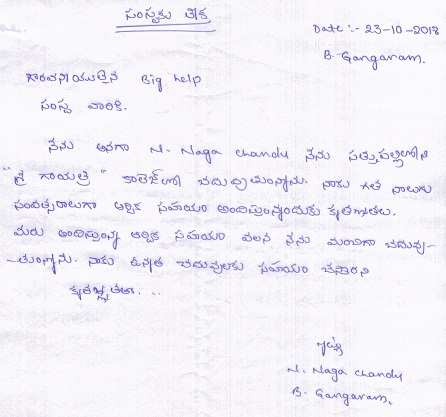 సంస్థకు లేఖ
Date :- 23-10-2018
B. Gangaram.
గౌరవనీయులైన Big help
సంస్థ వారికి.
నేను అనగా N. Naga chandu నేను సత్తుపల్లిలోని
"శ్రీ గాయత్రి" కాలేజ్‌లో చదువుతున్నాను. నాకు గత నాలుగు
సంవత్సరాలుగా ఆర్థిక సహాయం అందిస్తున్నందుకు కృతజ్ఞతలు.
మీరు అందిస్తున్న ఆర్థిక సహాయం వలన నేను మంచిగా చదువు-
-తున్నాను. నాకు ఉన్నత చదువులకు సహాయం చేస్తారని
కృతజ్ఞతతా....
ఇట్లు
N. Naga chandu
B. Gangaram.